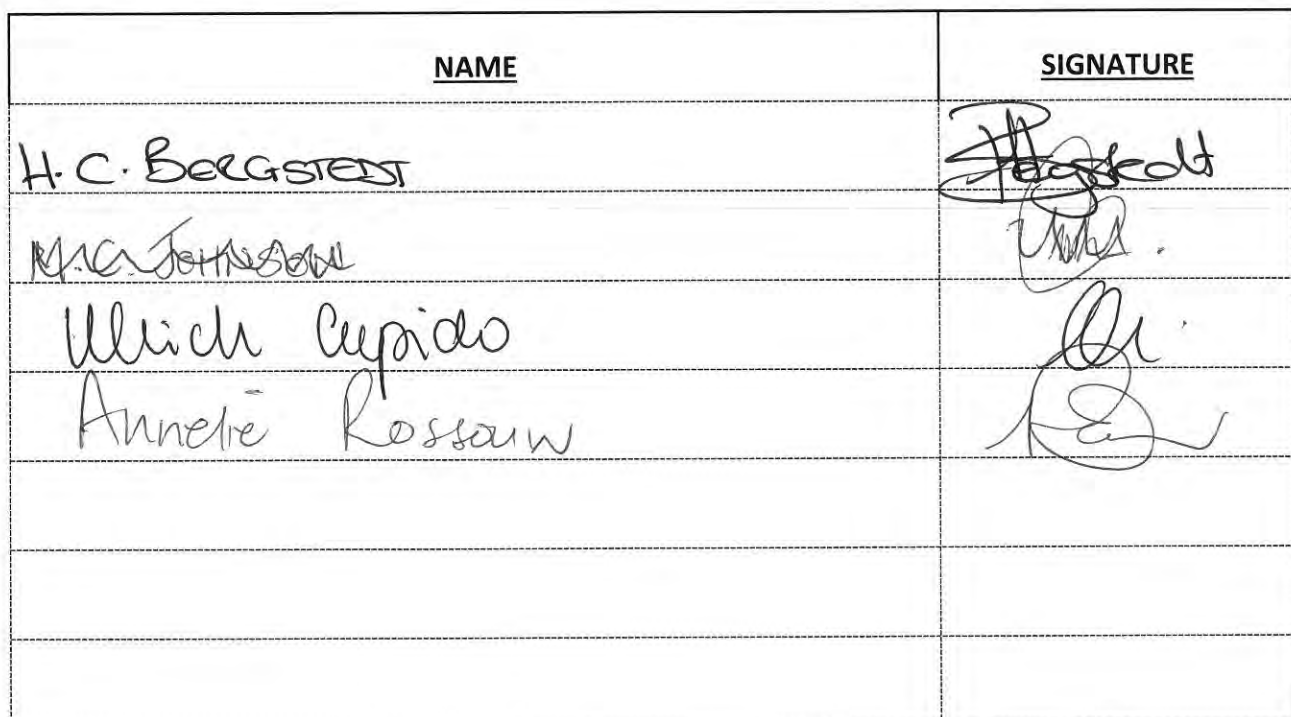 NAME SIGNATURE
H.C. BERGSTEDT
JOHNSON
Ulrich Cupido
Annelie Rossouw